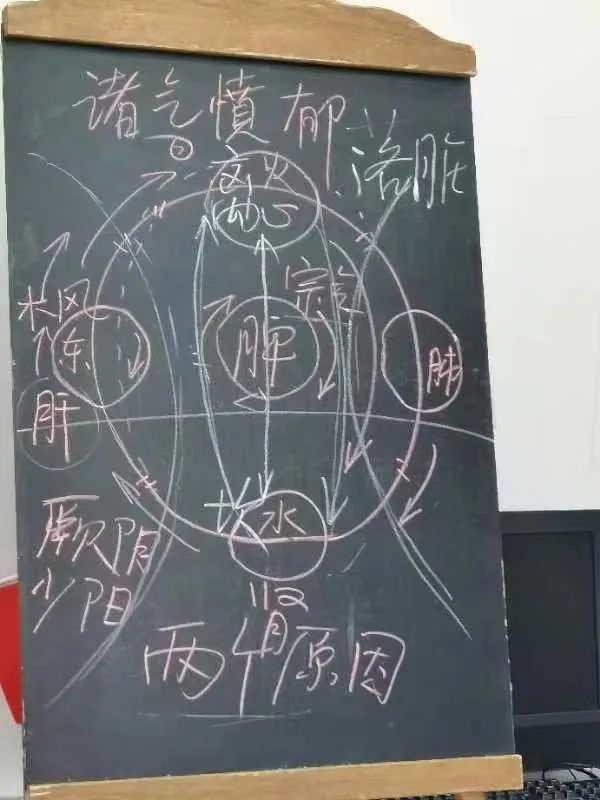 诸气愤郁
落脏
离火
心
宗气
木风
东
脾
肺
肝
坎水
肾
厥阴
少阳
两个原因